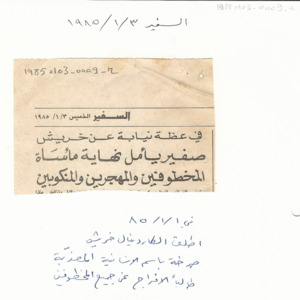 السفير ١٩٨٥/١/٣
1985 0103-0009-2
1985 0103-0009-2
السفير الخميس ١٩٨٥/١/٣
في عظة نيابة عن خريش
صفير يأمل نهاية مأساة
المخطوفين والمهجرين والمنكوبين
في ٨٥/١/١
اطلق الكاردينال خريش
صرخة باسم الانسانية المعذبة
طالباً الافراج عن جميع المخطوفين